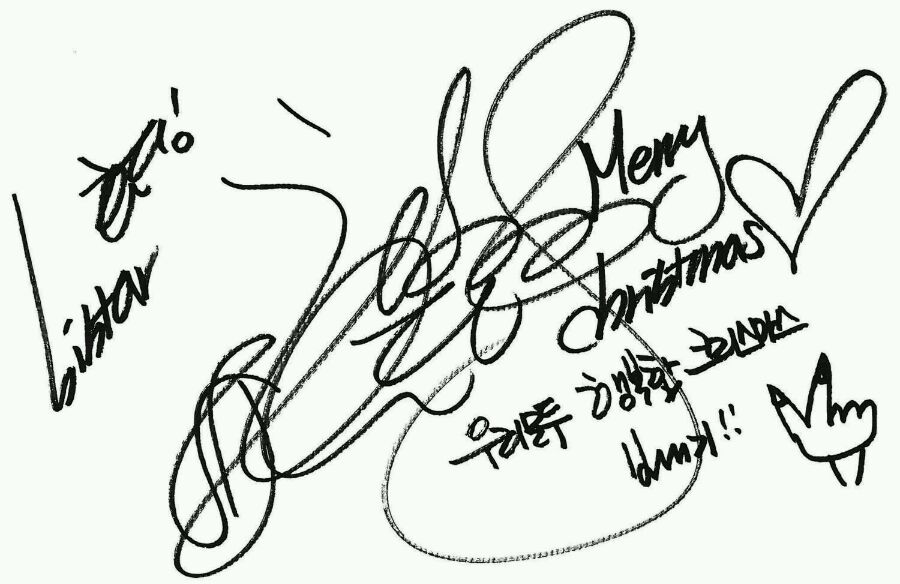 Listar
Merry
christmas
우리모두 행복한 크리스마스
보내기!!